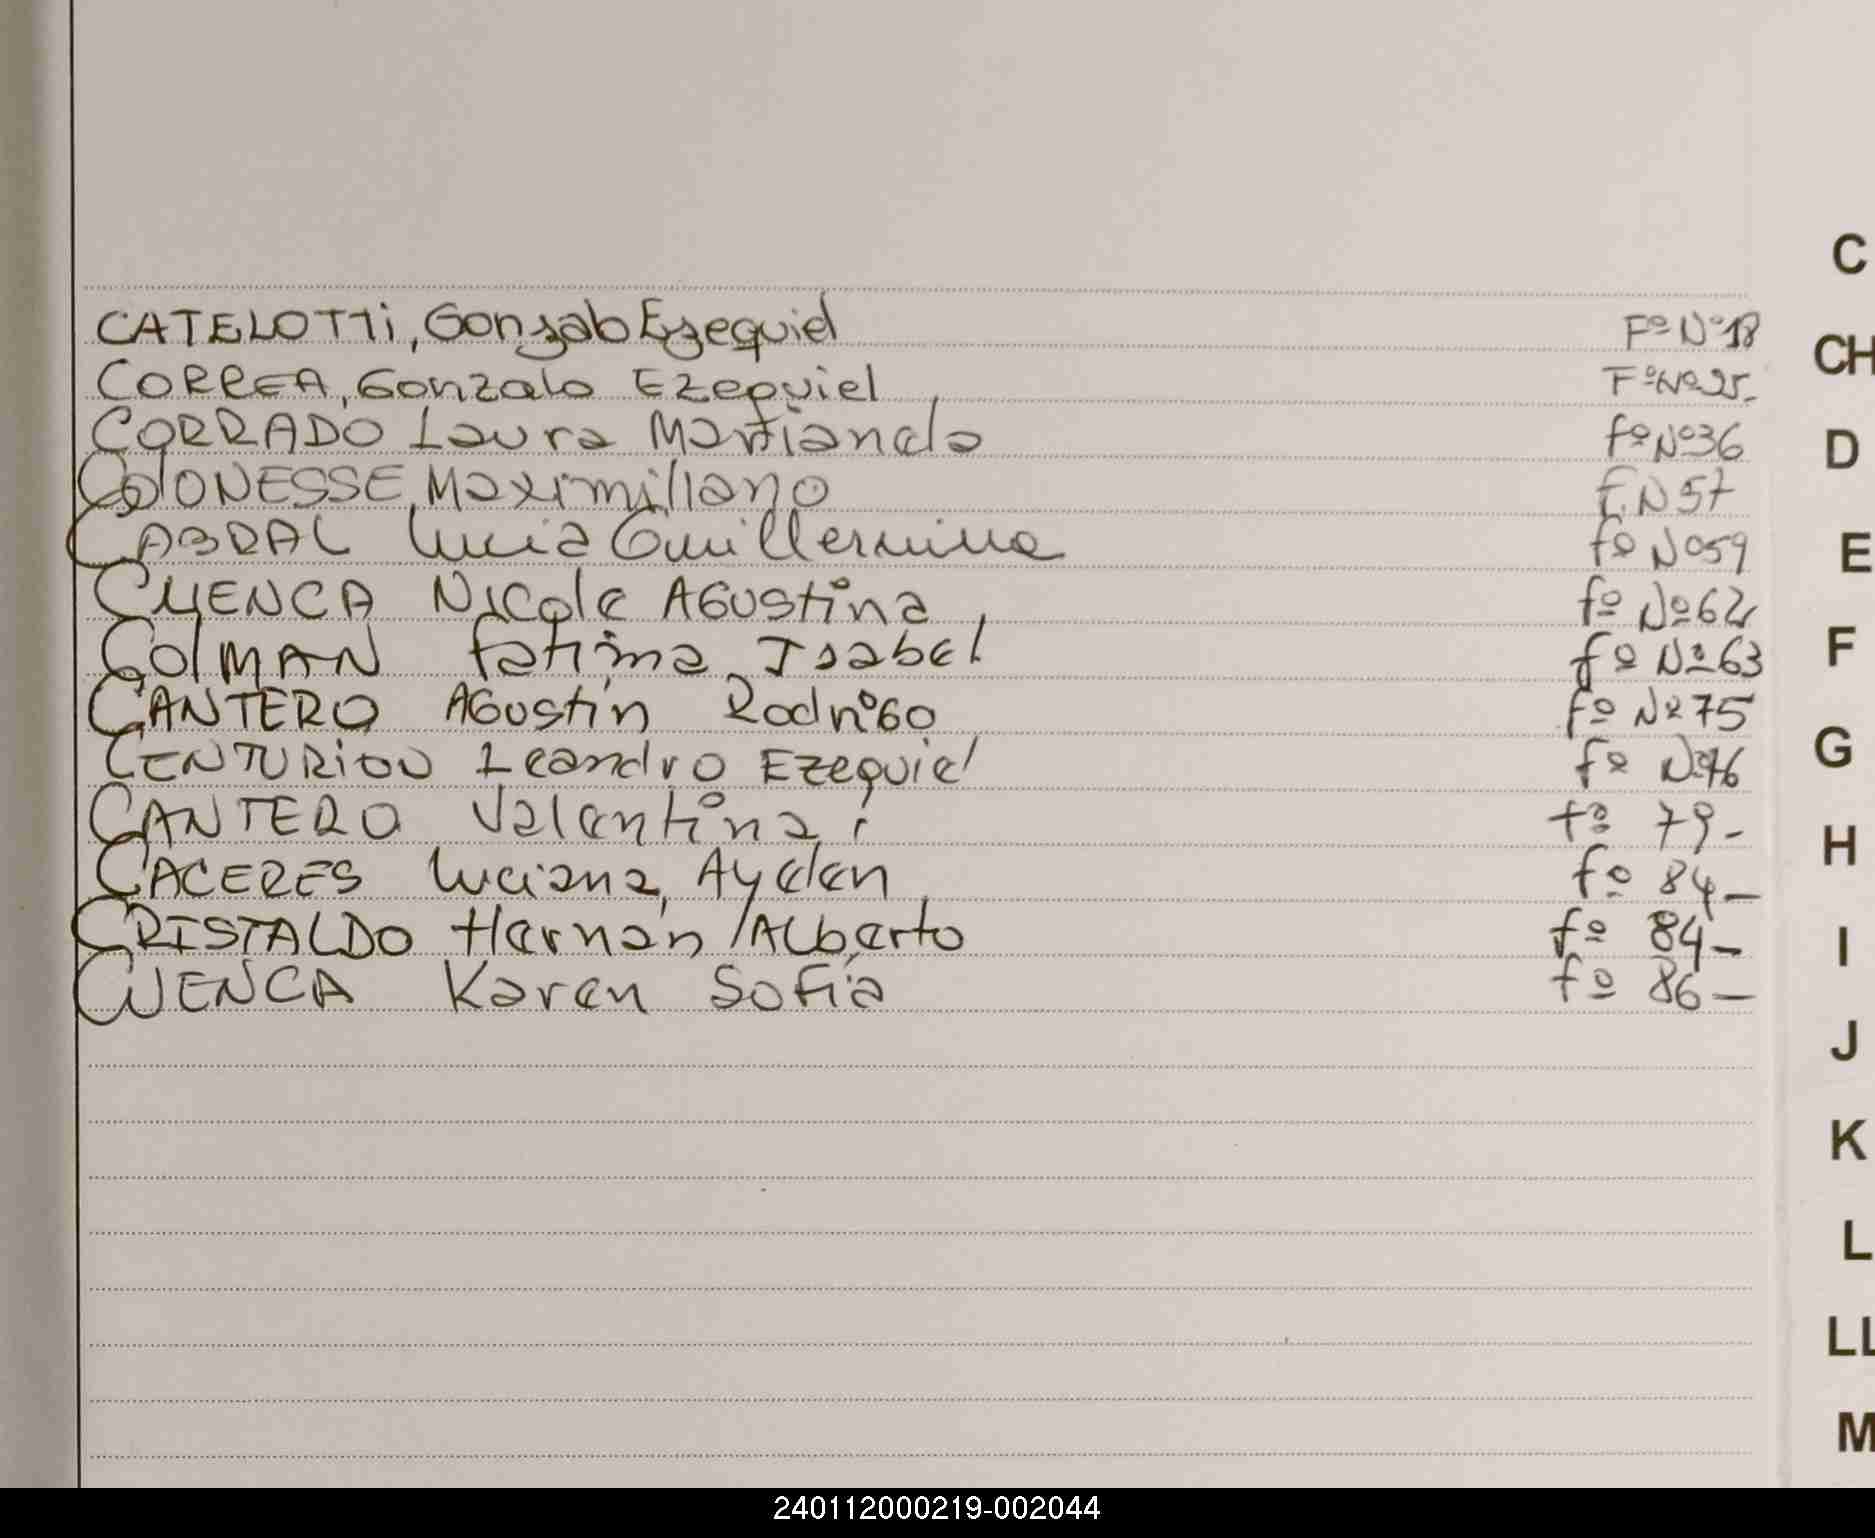 CATELOTTi, Gonzalo Ezequiel Fº Nº 18
CORREA, Gonzalo Ezequiel Fº Nº 25-
CORRADO Laura Marianela fº Nº 36
COlONESSE, Maximiliano F. N 57
CABRAL Lucía Guillermina fº Nº 59
CUENCA Nicole AGustina fº Nº 62
COlMAN fatima Isabel fº Nº 63
CANTERO AGustín RodriGo fº Nº 75
CENTURiON Leandro Ezequiel fº Nº 76
CANTERO Valentina fº 79-
CACERES Luciana Ayelen fº 84-
CRISTALDO Hernán Alberto fº 84-
CUENCA Karen Sofía fº 86-
C
CH
D
E
F
G
H
I
J
K
L
LL
M
240112000219-002044